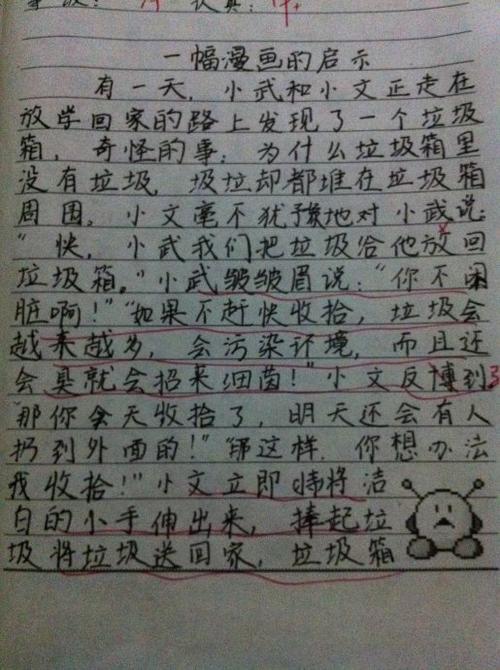 认真:
一幅漫画的启示
有一天,小武和小文正走在
放学回家的路上发现了一个垃圾
箱,奇怪的事:为什么垃圾箱里
没有垃圾,圾垃却都堆在垃圾箱
周围。小文毫不犹豫地对小武说:
“快,小武我们把垃圾给他放回
垃圾箱。”小武皱皱眉说:“你不闲
脏啊!”“如果不赶快收拾,垃圾会
越来越多,会污染环境,而且还
会臭就会招来细菌!”小文反博到
那你今天收拾了,明天还会有人
扔到外面的!”“那这样,你想办法
我收拾!”小文立即将洁
白的小手伸出来,捧起垃
圾将垃圾送回家,垃圾箱